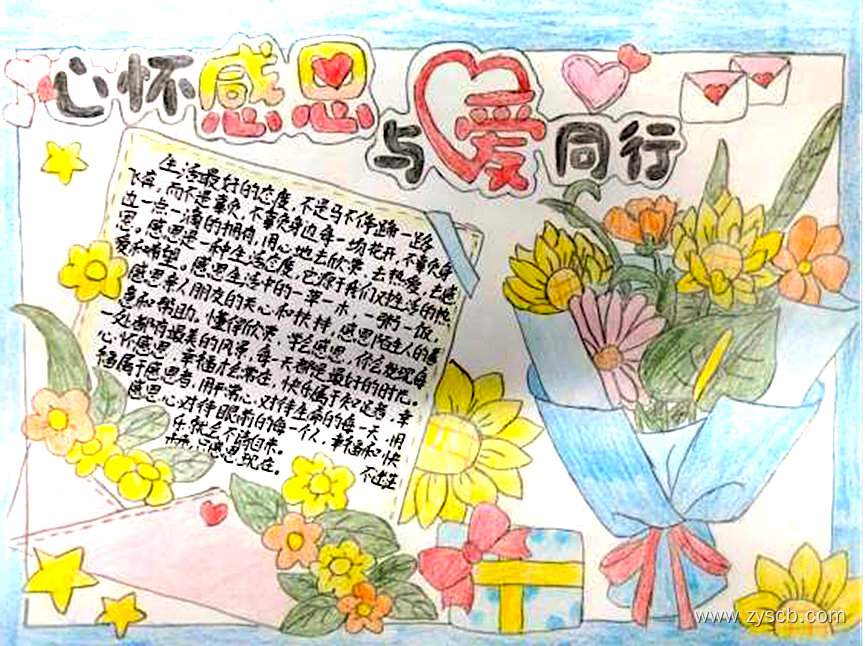 心怀感恩
与爱同行
生活最好的态度,不是马不停蹄一路
飞奔,而不是辜负,不辜负身边每一场花开,不辜负身
边一点一滴的拥有,用心地去欣赏,去热爱,去感
恩。感恩是一种生活态度,它源于我们对生活的热
爱和希望。感恩生活中的一草一木,一粥一饭,
感恩亲人朋友的关心和扶持,感恩陌生人的善
意和帮助。懂得欣赏,学会感恩,你会发现每
一处都有最美的风景,每一天都是最好的时光。
心怀感恩,幸福才会常在,快乐属于知足者,幸
福属于感恩者,用平常心,对待生命的每一天,用
感恩心对待眼前的每一个人,幸福和快
乐就会不请自来。
感恩现在。
www.zyscb.com